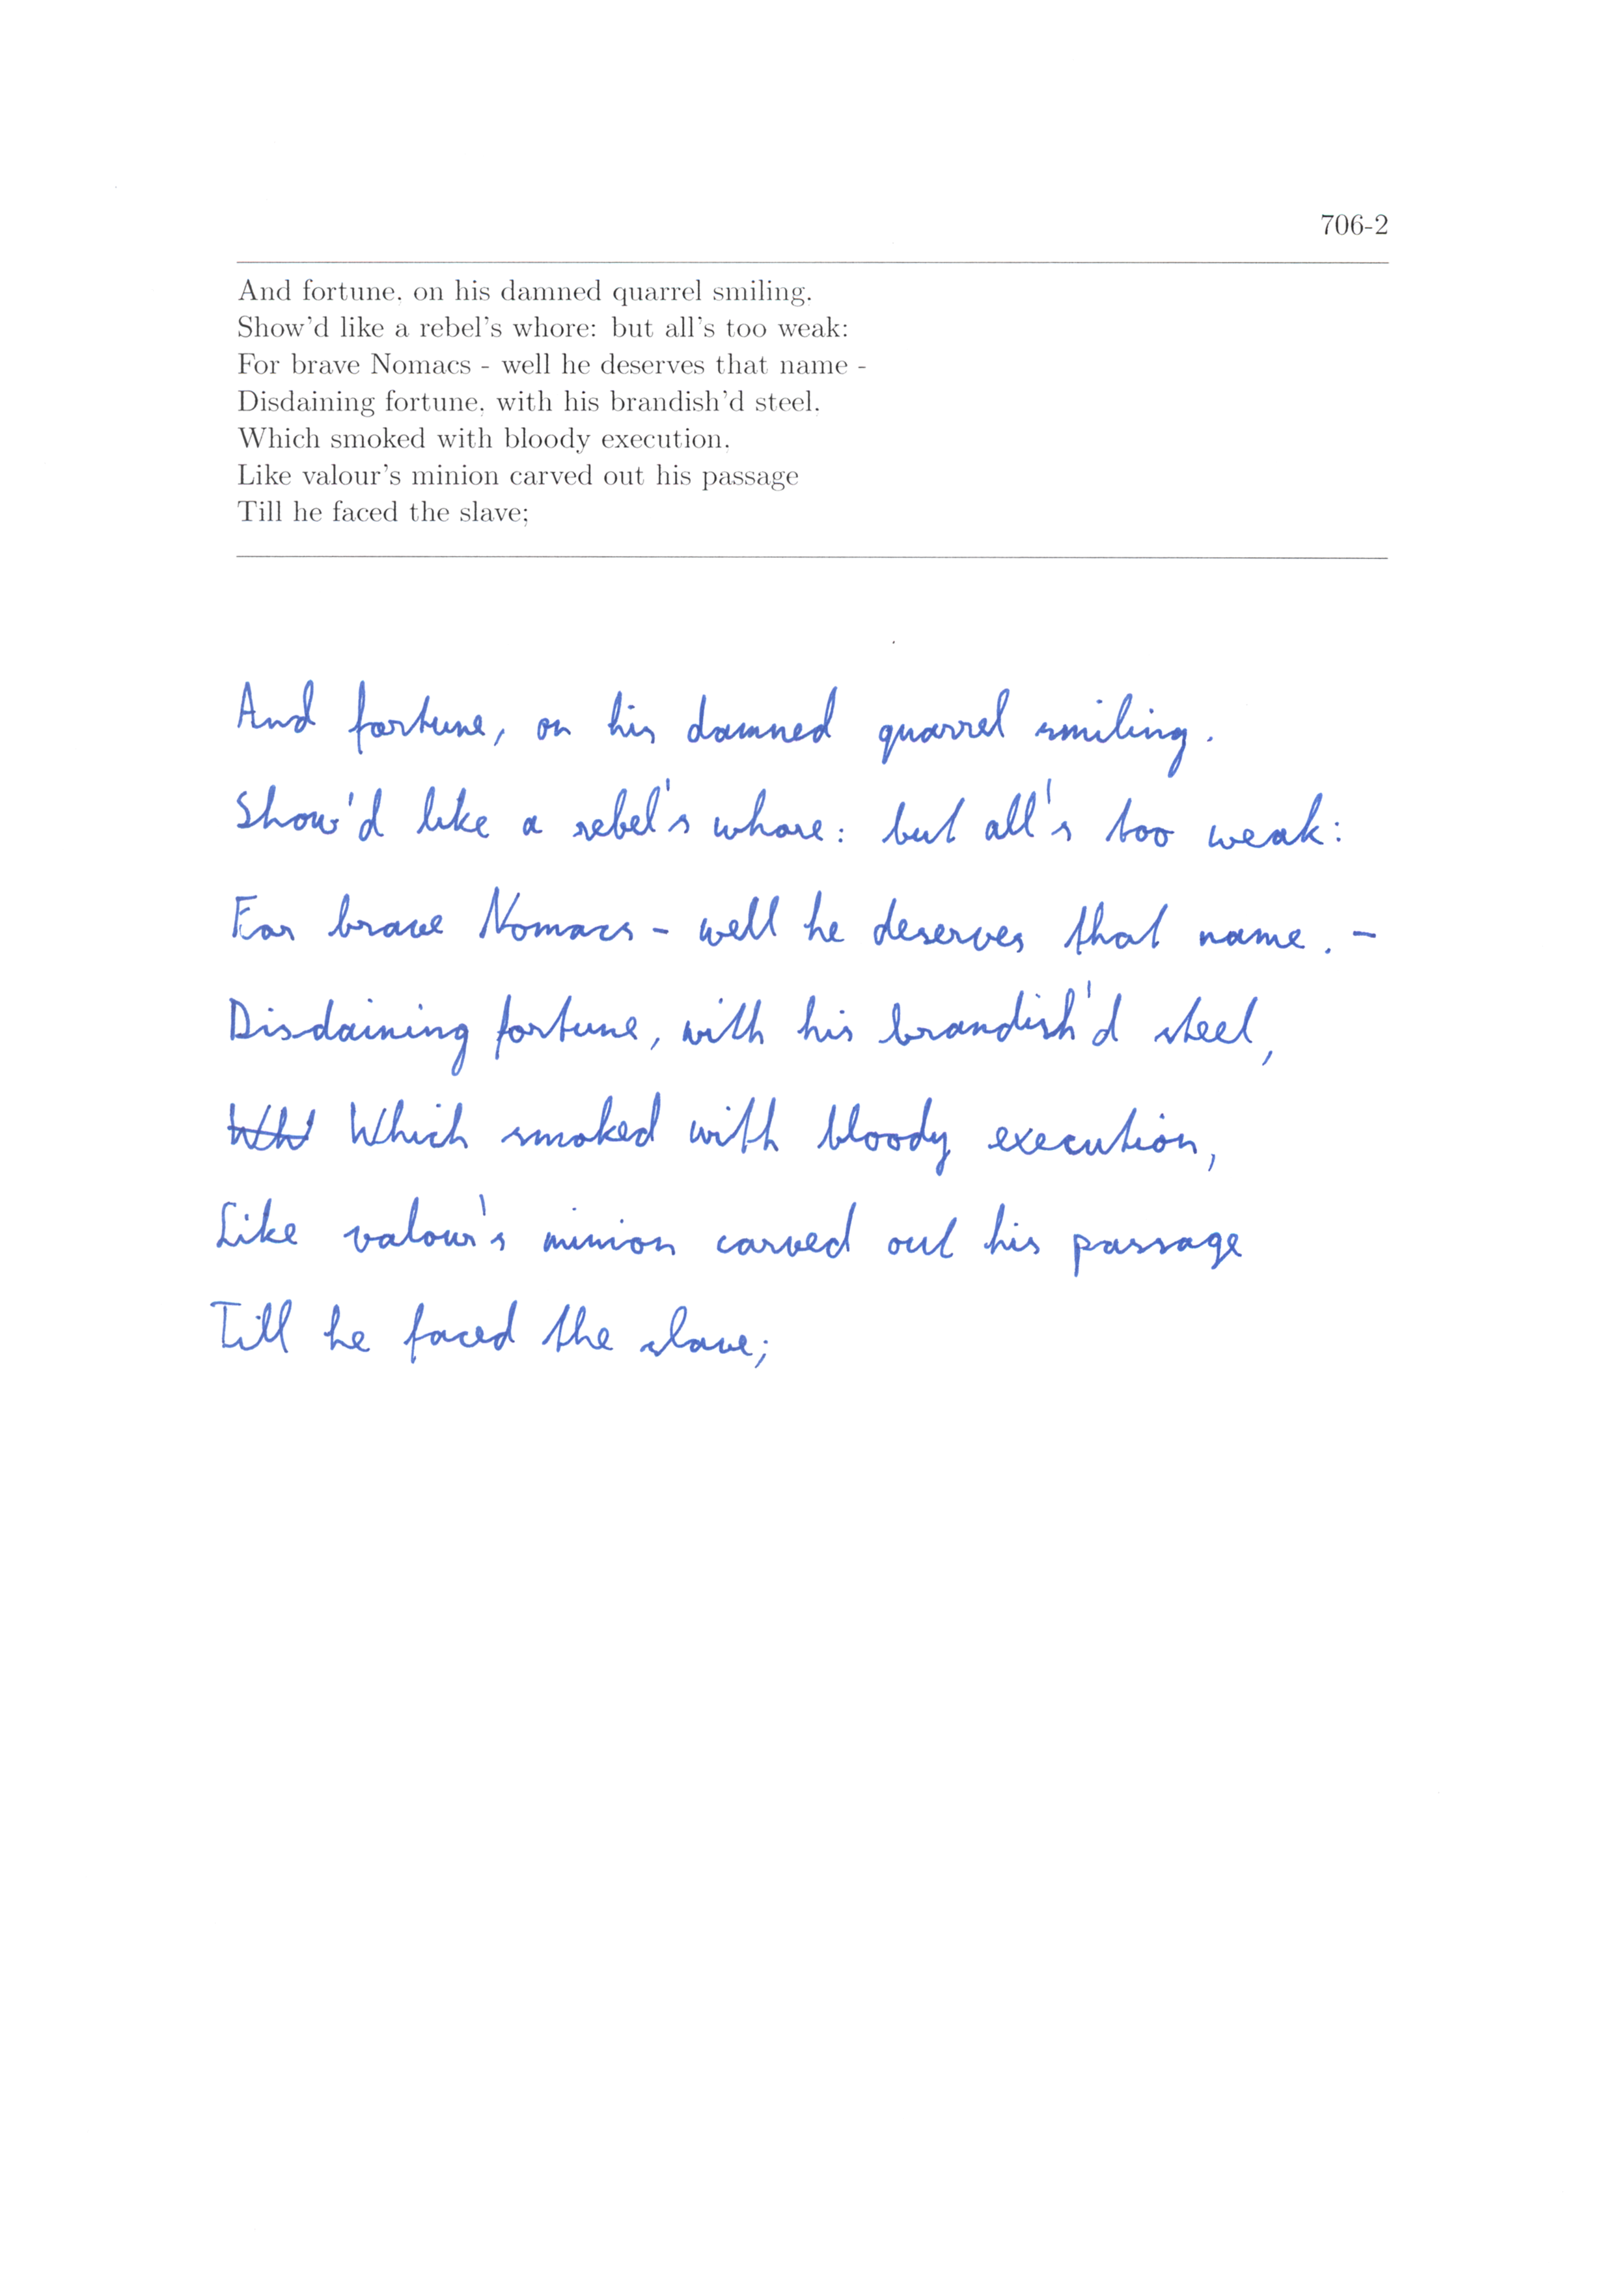 706-2
And fortune, on his damned quarrel smiling.
Show'd like a rebel's whore: but all's too weak:
For brave Nomacs - well he deserves that name -
Disdaining fortune, with his brandish'd steel.
Which smoked with bloody execution.
Like valour's minion carved out his passage
Till he faced the slave;
And fortune, on his damned quarrel smiling.
Show'd like a rebel's whore: but all's too weak:
For brave Nomacs - well he deserves that name. -
Disdaining fortune, with his brandish'd steel,
Which smoked with bloody execution,
Like valour's minion carved out his passage
Till he faced the slave;